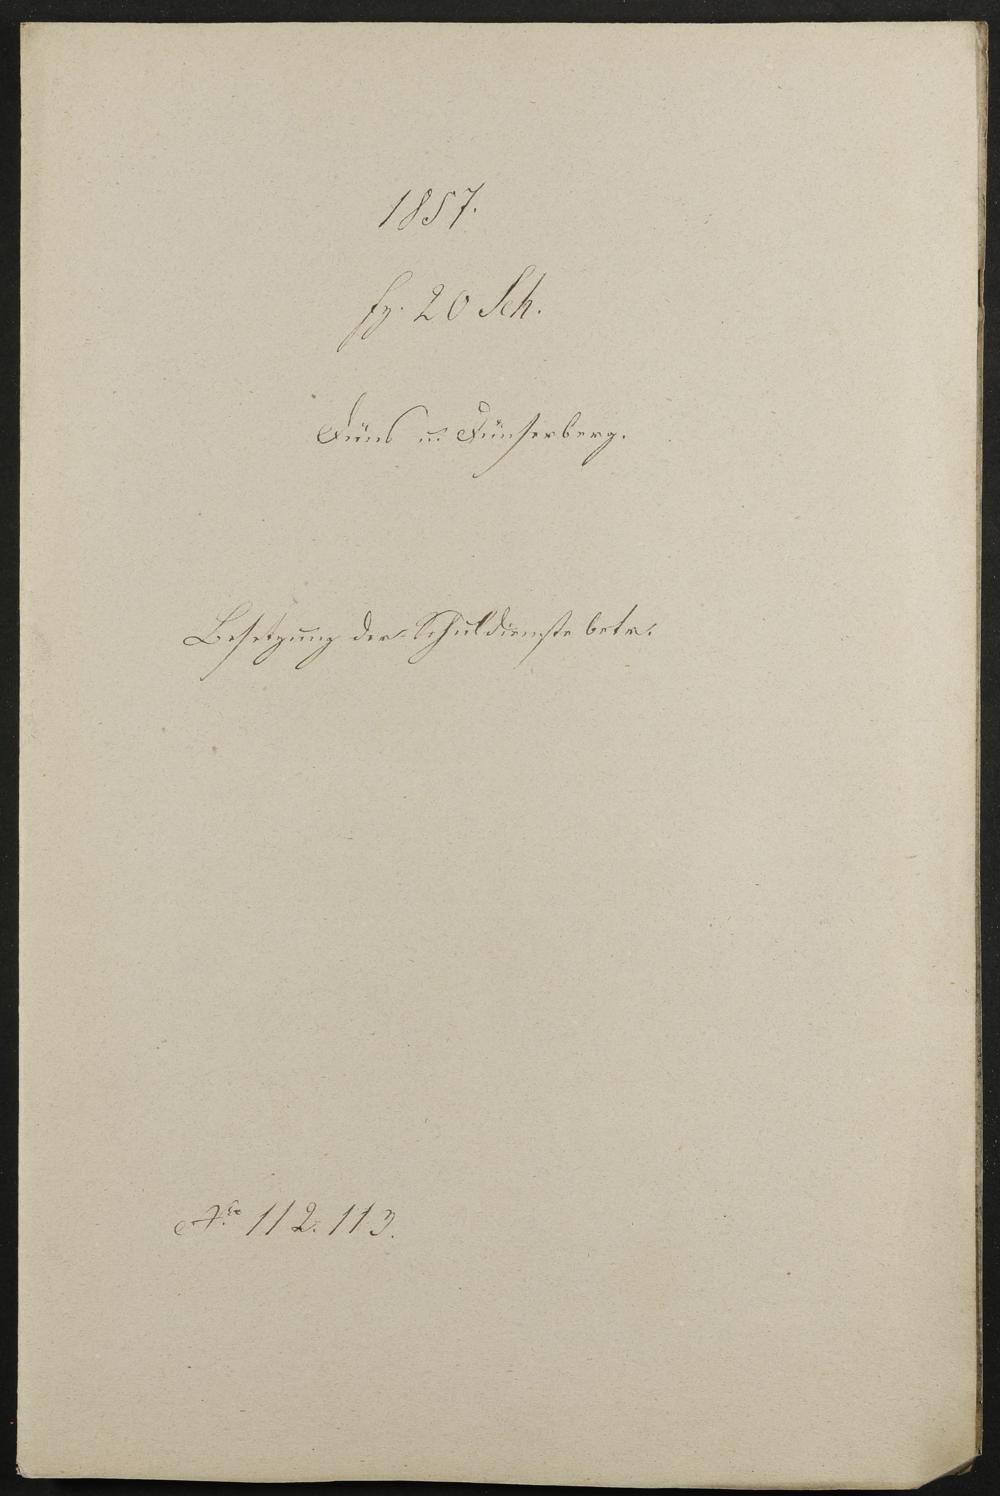 1857.
fz. 20 Sch.
Düns u. Dünserberg.
Besetzung der Schuldienste betr.
112. 113.